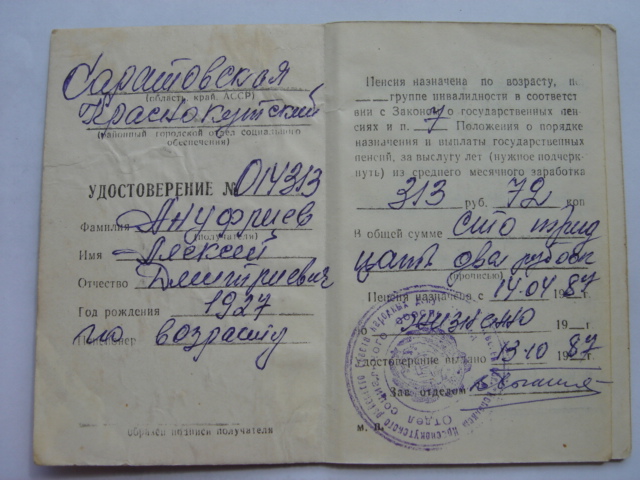 Саратовская
(область, край, АССР)
Краснокутский
(районный городской отдел социального
обеспечения)
УДОСТОВЕРЕНИЕ № 014313
Фамилия Ануфриев
(получателя)
Имя Алексей
Отчество Дмитриевич
Год рождения 1927
Пенсионер по возрасту
образец подписи получателя
Пенсия назначена по возрасту, п.
группе инвалидности в соответст
вии с Законом о государственных пен-
сиях и п. 7 Положения о порядке
назначения и выплаты государственных
пенсий, за выслугу лет (нужное подчерк-
нуть) из среднего месячного заработка
313 руб. 72 коп
В общей сумме сто трид
цать два рубля
(прописью)
Пенсия назначена с 14.04 1987 г.
по пожизненно 19 г
Удостоверение выдано 13.10 1987 г.
Зав. отделом
М. П.